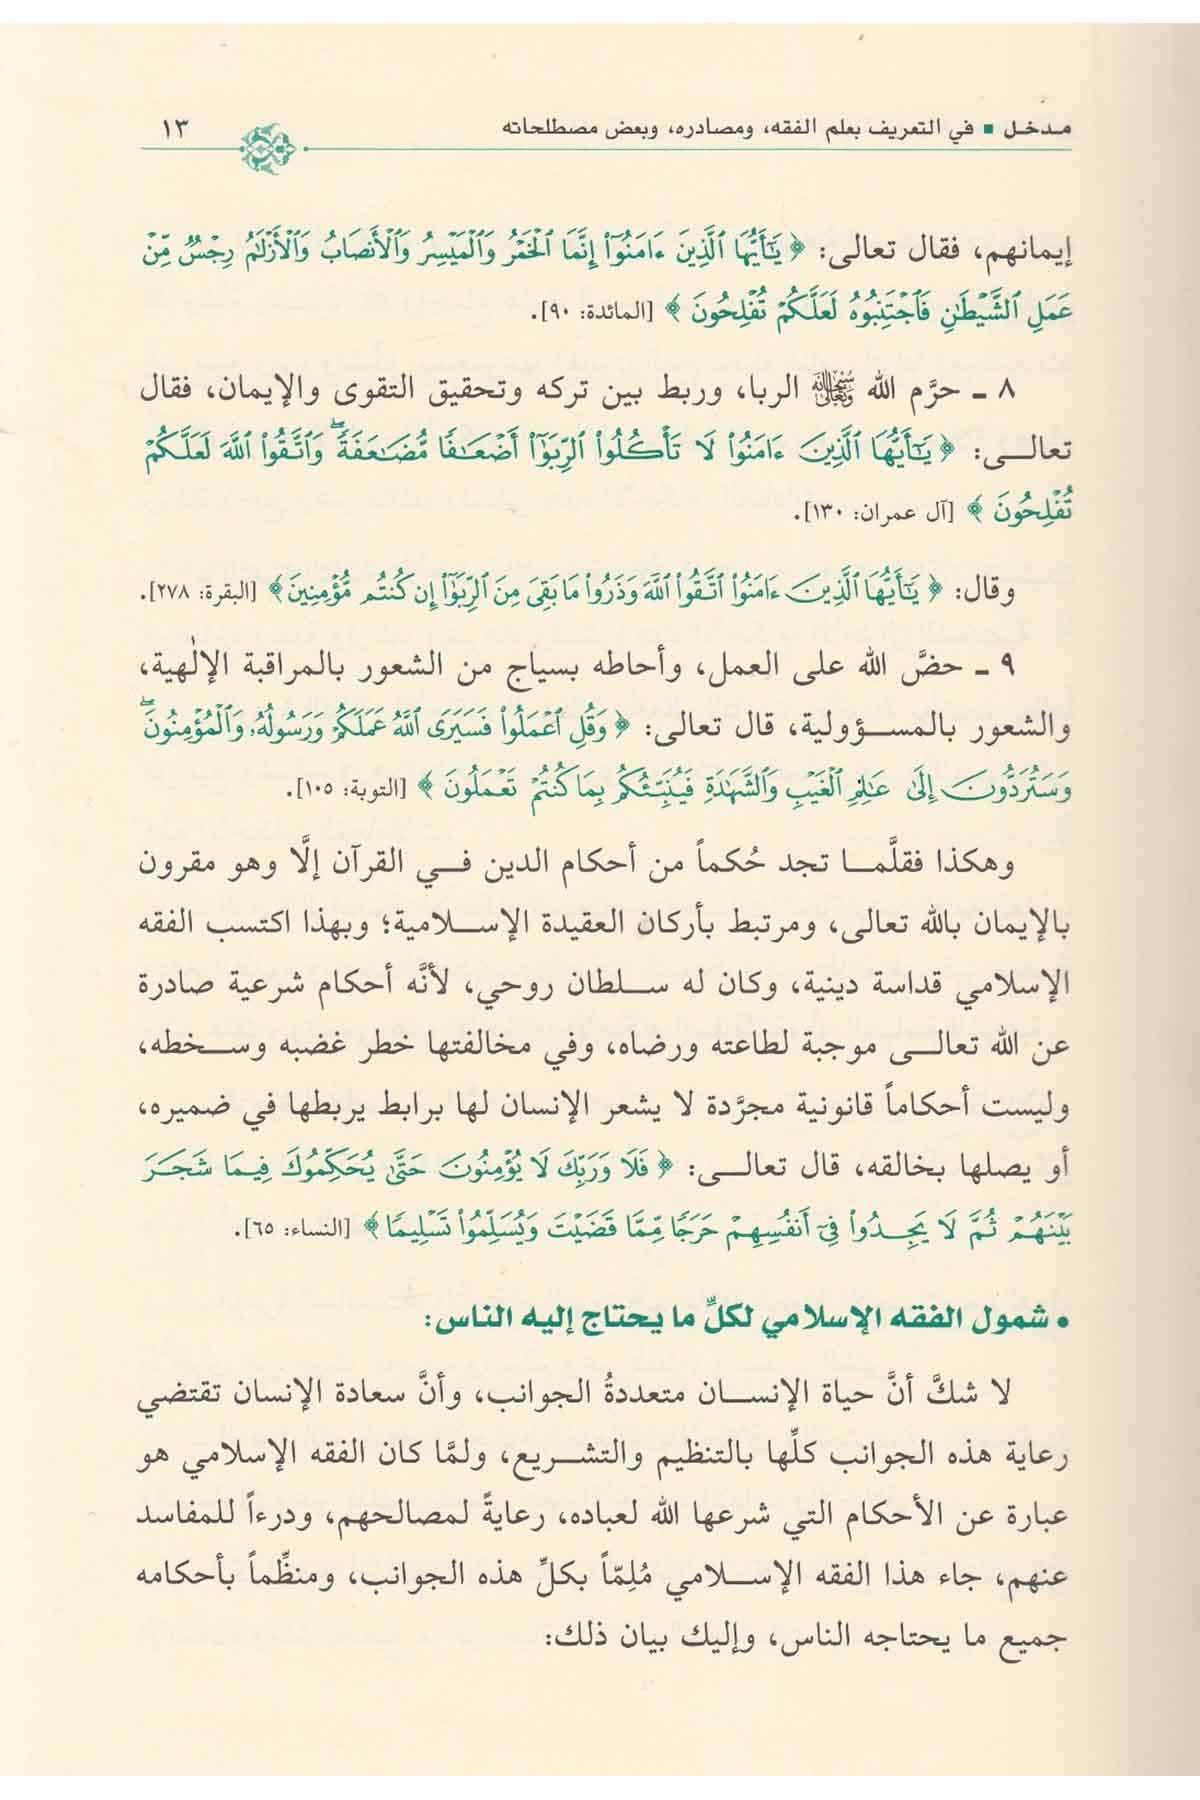 مدخل ■ في التعريف بعلم الفقه، ومصادره، وبعض مصطلحاته ١٣
إيمانهم، فقال تعالى: ﴿ يَٰٓأَيُّهَا ٱلَّذِينَ ءَامَنُوٓا۟ إِنَّمَا ٱلْخَمْرُ وَٱلْمَيْسِرُ وَٱلْأَنصَابُ وَٱلْأَزْلَٰمُ رِجْسٌ مِّنْ
عَمَلِ ٱلشَّيْطَٰنِ فَٱجْتَنِبُوهُ لَعَلَّكُمْ تُفْلِحُونَ ﴾ [المائدة: ٩٠].
٨ ـ حرَّم الله سُبْحَانَهُ وَتَعَالَى الربا، وربط بين تركه وتحقيق التقوى والإيمان، فقال
تعالـــى: ﴿ يَٰٓأَيُّهَا ٱلَّذِينَ ءَامَنُوا۟ لَا تَأْكُلُوا۟ ٱلرِّبَوٰٓا۟ أَضْعَٰفًا مُّضَٰعَفَةً ۖ وَٱتَّقُوا۟ ٱللَّهَ لَعَلَّكُمْ
تُفْلِحُونَ ﴾ [آل عمران: ١٣٠].
وقال: ﴿ يَٰٓأَيُّهَا ٱلَّذِينَ ءَامَنُوا۟ ٱتَّقُوا۟ ٱللَّهَ وَذَرُوا۟ مَا بَقِىَ مِنَ ٱلرِّبَوٰٓا۟ إِن كُنتُم مُّؤْمِنِينَ ﴾ [البقرة: ٢٧٨].
٩ ـ حضَّ الله على العمل، وأحاطه بسياج من الشعور بالمراقبة الإلٰهية،
والشعور بالمســؤولية، قال تعالى: ﴿ وَقُلِ ٱعْمَلُوا۟ فَسَيَرَى ٱللَّهُ عَمَلَكُمْ وَرَسُولُهُۥ وَٱلْمُؤْمِنُونَ ۖ
وَسَتُرَدُّونَ إِلَىٰ عَٰلِمِ ٱلْغَيْبِ وَٱلشَّهَٰدَةِ فَيُنَبِّئُكُم بِمَا كُنتُمْ تَعْمَلُونَ ﴾ [التوبة: ١٠٥].
وهكذا فقلَّمــا تجد حُكماً من أحكام الدين فــي القرآن إلَّا وهو مقرون
بالإيمان بالله تعالى، ومرتبط بأركان العقيدة الإســلامية؛ وبهذا اكتسب الفقه
الإسلامي قداسة دينية، وكان له ســلطان روحي، لأنَّه أحكام شرعية صادرة
عن الله تعالــى موجبة لطاعته ورضاه، وفي مخالفتها خطر غضبه وســخطه،
وليست أحكاماً قانونية مجرَّدة لا يشعر الإنسان لها برابط يربطها في ضميره،
أو يصلها بخالقه، قال تعالــى: ﴿ فَلَا وَرَبِّكَ لَا يُؤْمِنُونَ حَتَّىٰ يُحَكِّمُوكَ فِيمَا شَجَرَ
بَيْنَهُمْ ثُمَّ لَا يَجِدُوا۟ فِىٓ أَنفُسِهِمْ حَرَجًا مِّمَّا قَضَيْتَ وَيُسَلِّمُوا۟ تَسْلِيمًا ﴾ [النساء: ٦٥].
• شمول الفقه الإسلامي لكلِّ ما يحتاج إليه الناس:
لا شكَّ أنَّ حياة الإنســان متعددةُ الجوانب، وأنَّ سعادة الإنسان تقتضي
رعاية هذه الجوانب كلِّها بالتنظيم والتشــريع، ولمَّا كان الفقه الإسلامي هو
عبارة عن الأحكام التي شرعها الله لعباده، رعايةً لمصالحهم، ودرءاً للمفاسد
عنهم، جاء هذا الفقه الإســلامي مُلِمّاً بكلِّ هذه الجوانب، ومنظِّماً بأحكامه
جميع ما يحتاجه الناس، وإليك بيان ذلك: